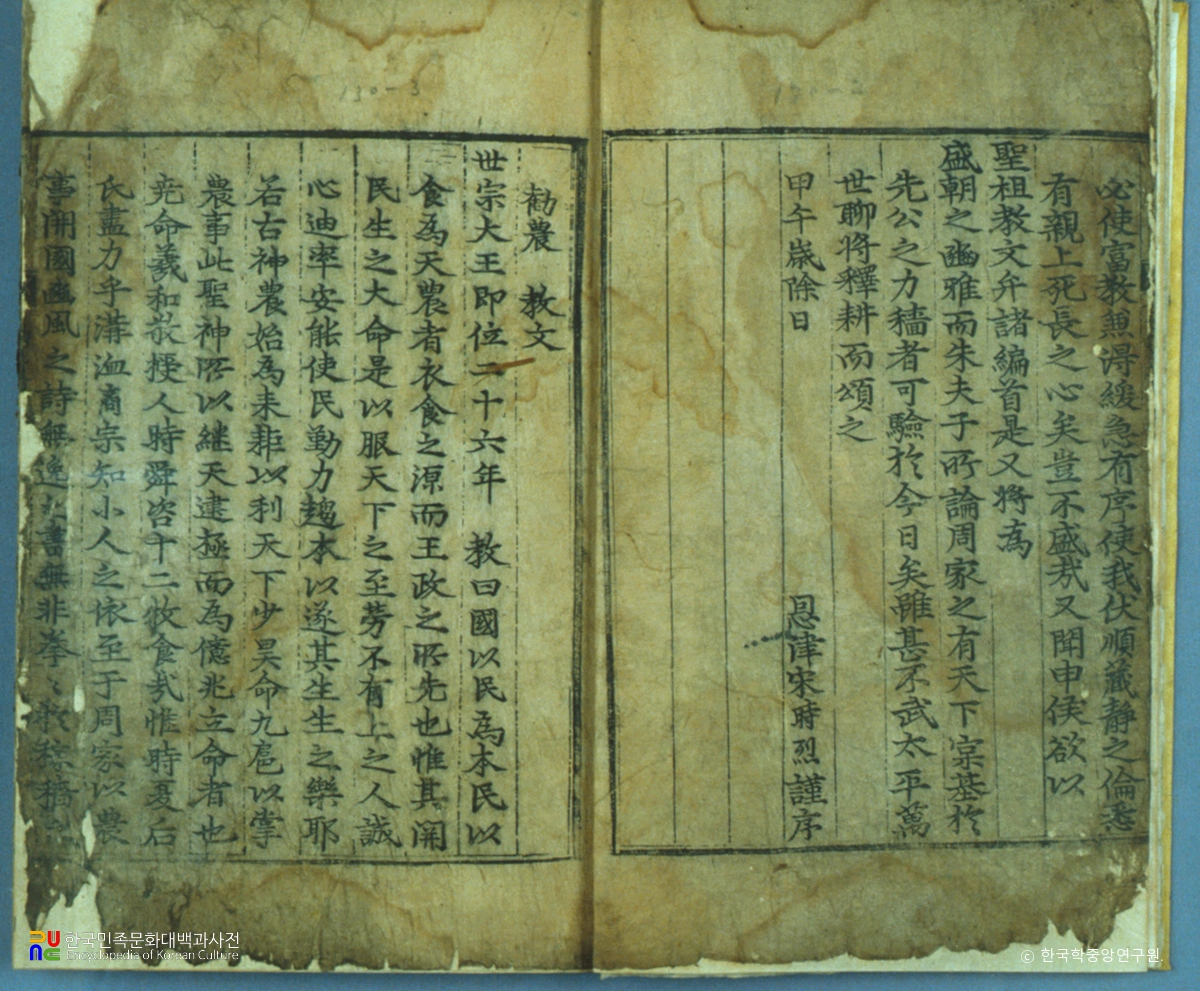 必使富教無得緩急有序使我伏順藏靜之倫悉
有親上死長之心矣豈不盛哉又聞申侯欲以
聖祖教文弁諸編首是又將爲
盛朝之豳雅而朱夫子所論周家之有天下宲基於
先公之力穡者可驗於今日矣雖甚不武太平萬
世聊將釋耕而頌之
甲午嵗除日 恩津宋時烈謹序
勸農 教文
世宗大王即位二十六年 教曰國以民爲本民以
食爲天農者衣食之源而王政之所先也惟其開
民生之大命是以服天下之至勞不有上之人誠
心迪率安能使民勤力趨本以遂其生生之樂耶
若古神農始爲耒耟以利天下少昊命九扈以掌
農事此聖神所以継天建極而爲億兆立命者也
尭命羲和敬授人時舜咨十二牧食哉惟時夏后
氏盡力乎溝洫商宗知小人之依至于周家以農
事開國豳風之詩無逸之書無非拳〻敎稼穡
130-3
130-2
한국민족문화대백과사전
Encyclopedia of Korean Culture
ⓒ 한국학중앙연구원.